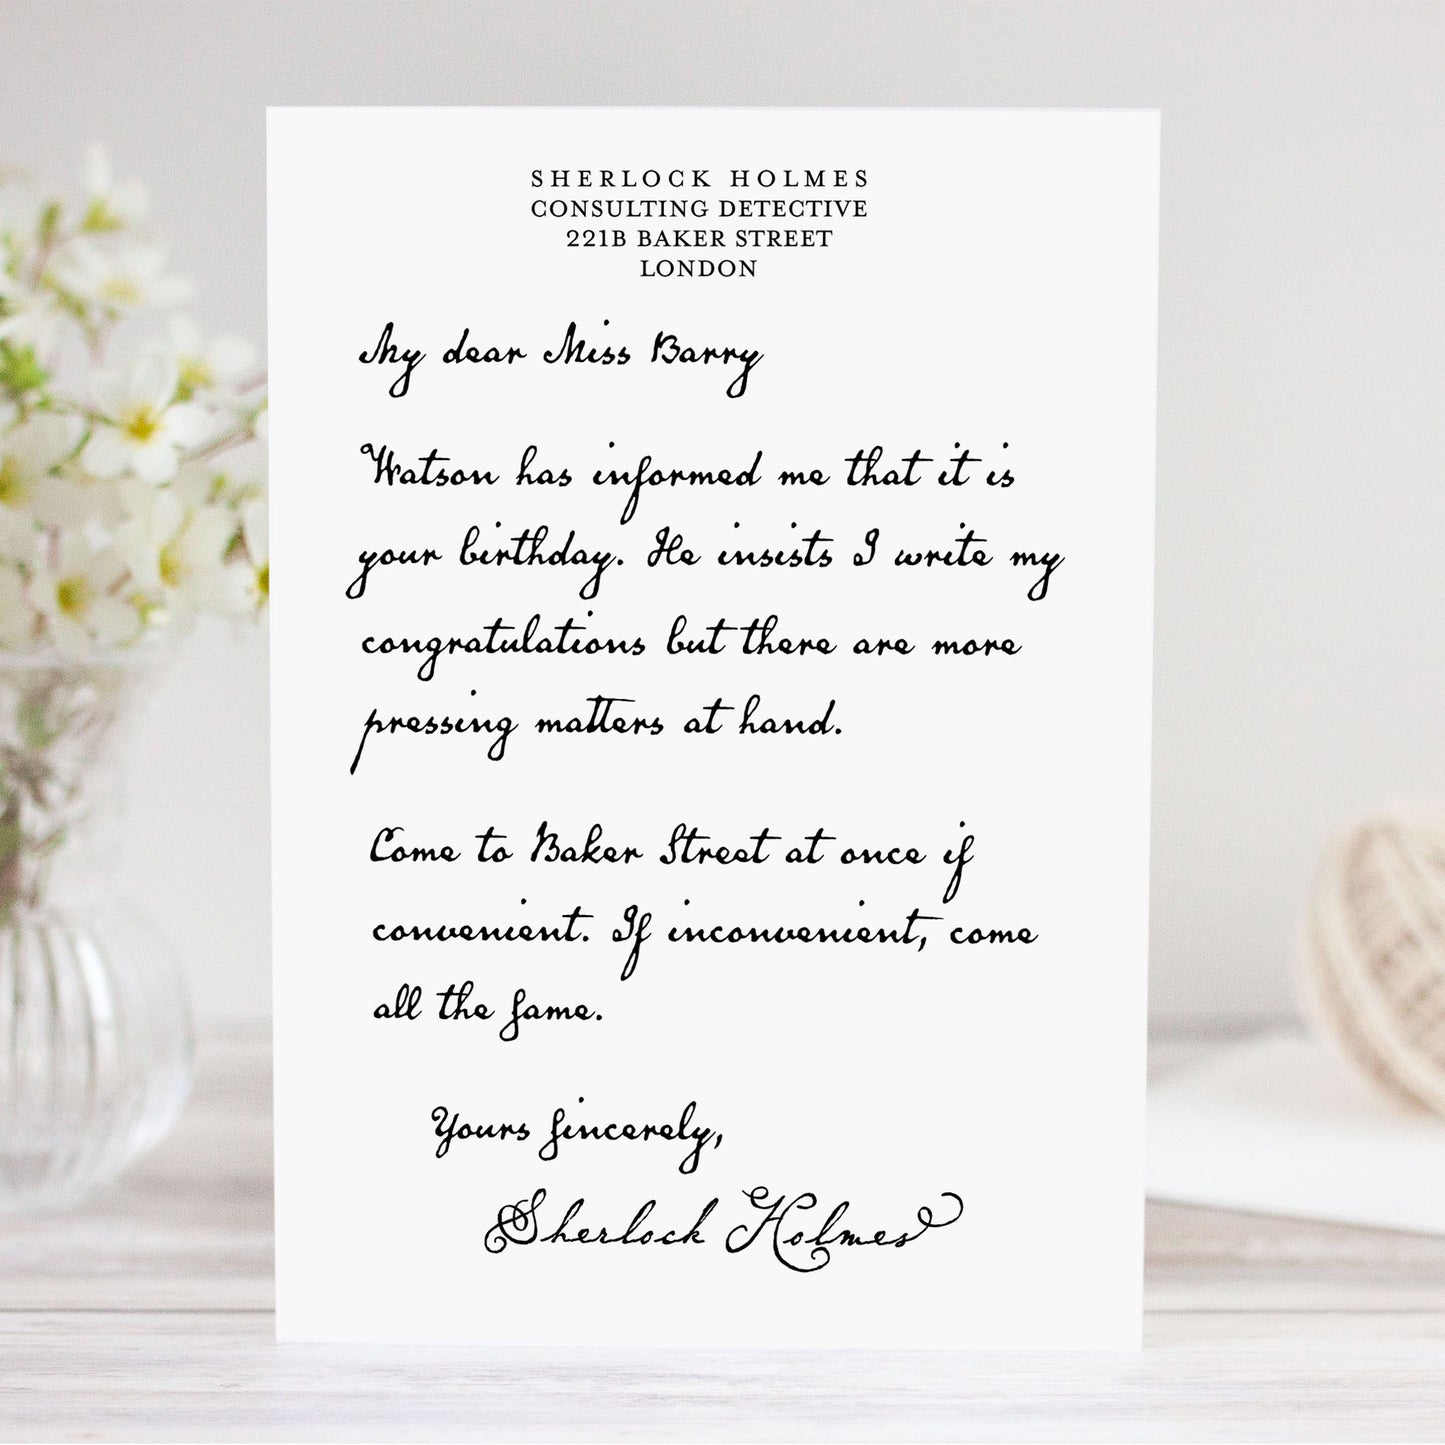 SHERLOCK HOLMES
CONSULTING DETECTIVE
221B BAKER STREET
LONDON
My dear Miss Barry
Watson has informed me that it is
your birthday. He insists I write my
congratulations but there are more
pressing matters at hand.
Come to Baker Street at once if
convenient. If inconvenient, come
all the same.
Yours sincerely,
Sherlock Holmes